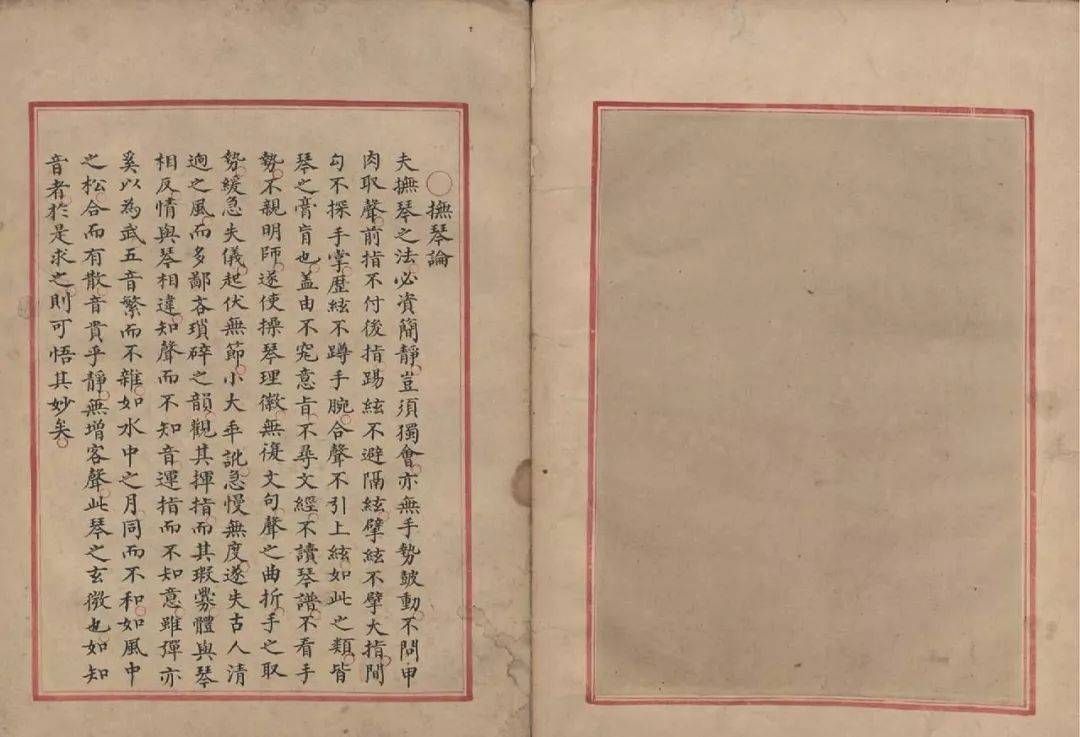 〇撫琴論
夫撫琴之法必資簡靜豈須獨會亦無手勢皷動不問甲
肉取聲前指不付後指踢絃不避隔絃擘絃不擘大指間
勾不探手掌歷絃不蹲手腕合聲不引上絃如此之類皆
琴之膏肓也盖由不究意旨不尋文經不讀琴譜不看手
勢不親明師遂使操琴理徽無復文句聲之曲折手之取
勢緩急失儀起伏無節小大乖訛急慢無度遂失古人清
逈之風而多鄙吝瑣碎之韻觀其揮指而其瑕釁體與琴
相反情與琴相違知聲而不知音運指而不知意雖彈亦
奚以為武五音繁而不雜如水中之月同而不和如風中
之松合而有散音貴乎靜無增客聲此琴之玄微也如知
音者於是求之則可悟其妙矣